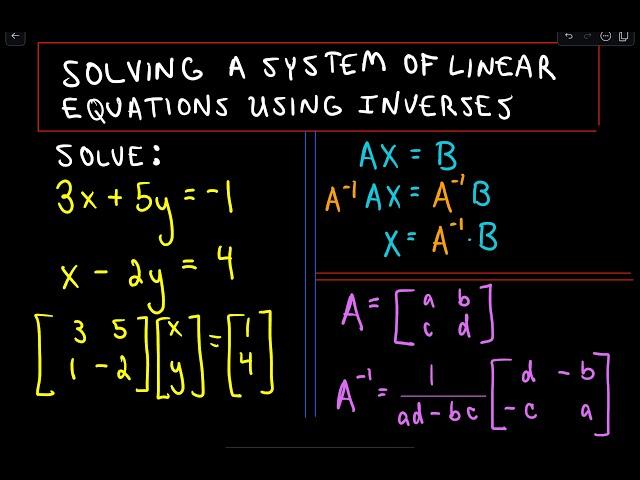 SOLVING A SYSTEM OF LINEAR
EQUATIONS USING INVERSES
SOLVE:
3x + 5y = -1
x - 2y = 4
[3 5
1 -2] [x
y] = [1
4]
AX = B
A⁻¹ AX = A⁻¹ B
X = A⁻¹ · B
A = [a b
c d]
A⁻¹ = 1/(ad - bc) [d -b
-c a]